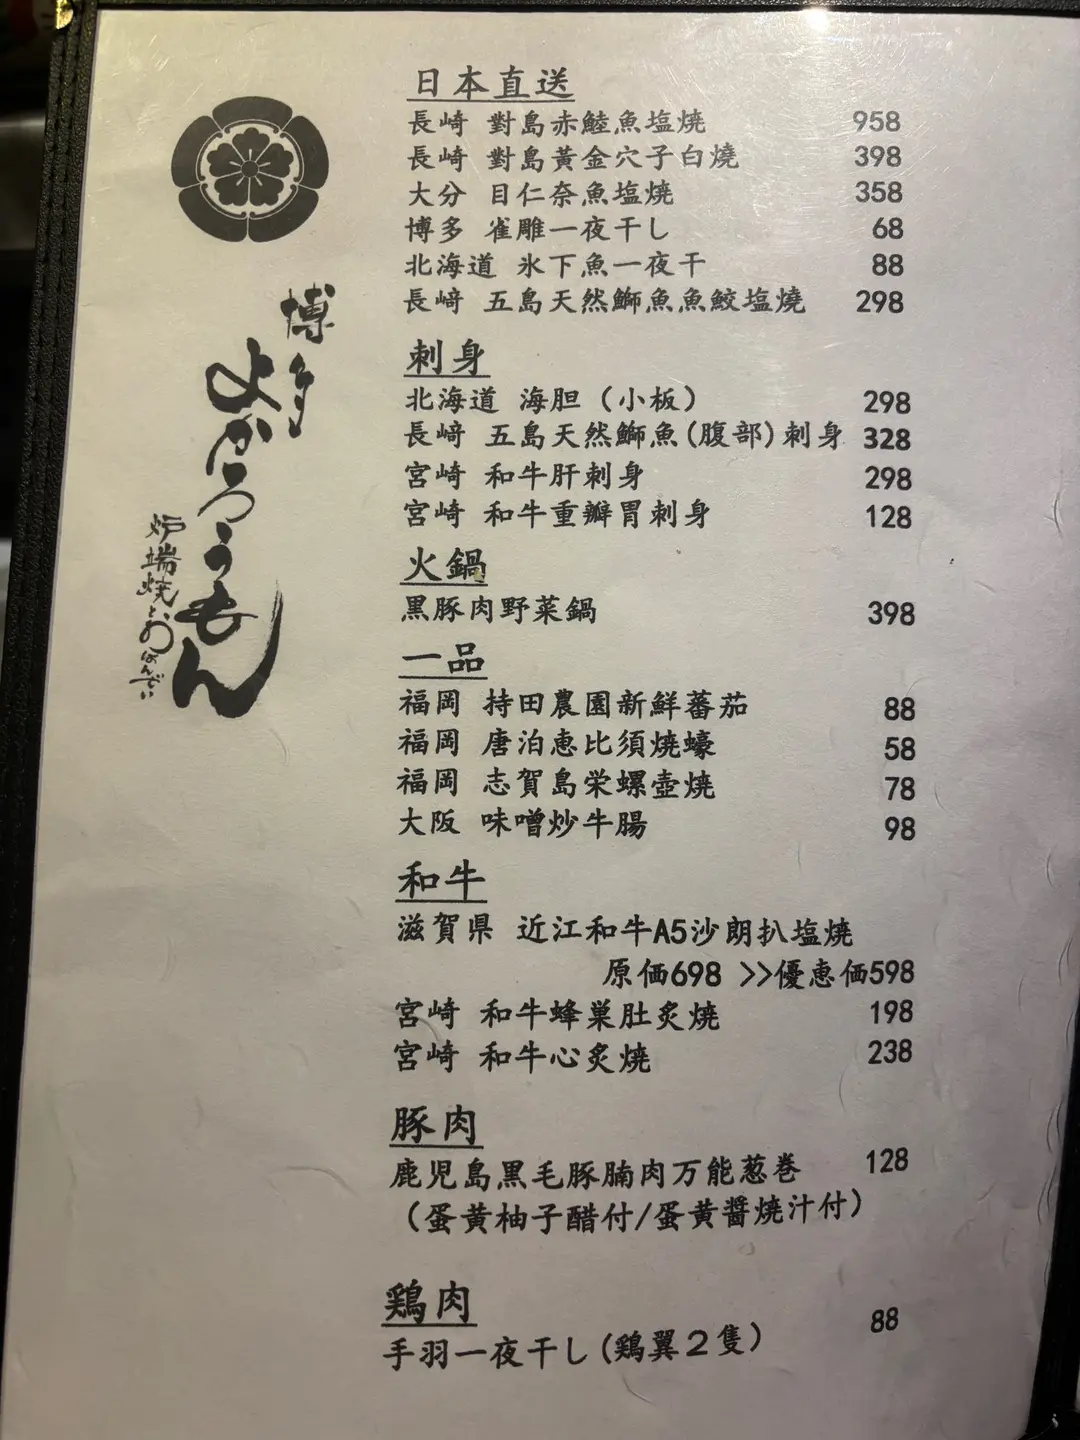 博多
よかろうもん
炉端焼とおばんざい
日本直送
長崎 對島赤鯥魚塩燒 958
長崎 對島黃金穴子白燒 398
大分 目仁奈魚塩燒 358
博多 雀雕一夜干し 68
北海道 氷下魚一夜干 88
長崎 五島天然鰤魚魚鮫塩燒 298
刺身
北海道 海胆（小板） 298
長崎 五島天然鰤魚(腹部)刺身 328
宮崎 和牛肝刺身 298
宮崎 和牛重瓣胃刺身 128
火鍋
黒豚肉野菜鍋 398
一品
福岡 持田農園新鮮蕃茄 88
福岡 唐泊恵比須燒蠔 58
福岡 志賀島栄螺壺燒 78
大阪 味噌炒牛腸 98
和牛
滋賀県 近江和牛A5沙朗扒塩燒
原価698 >>優恵価598
宮崎 和牛蜂巣肚炙燒 198
宮崎 和牛心炙燒 238
豚肉
鹿児島黒毛豚腩肉万能葱巻 128
（蛋黄柚子醋付/蛋黄醬燒汁付）
鶏肉
手羽一夜干し(鶏翼２隻） 88